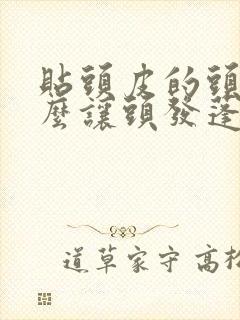 貼頭皮的頭
麼讓頭發蓬
道草家守 高松